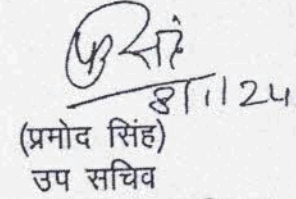 8/1/24
(प्रमोद सिंह)
उप सचिव